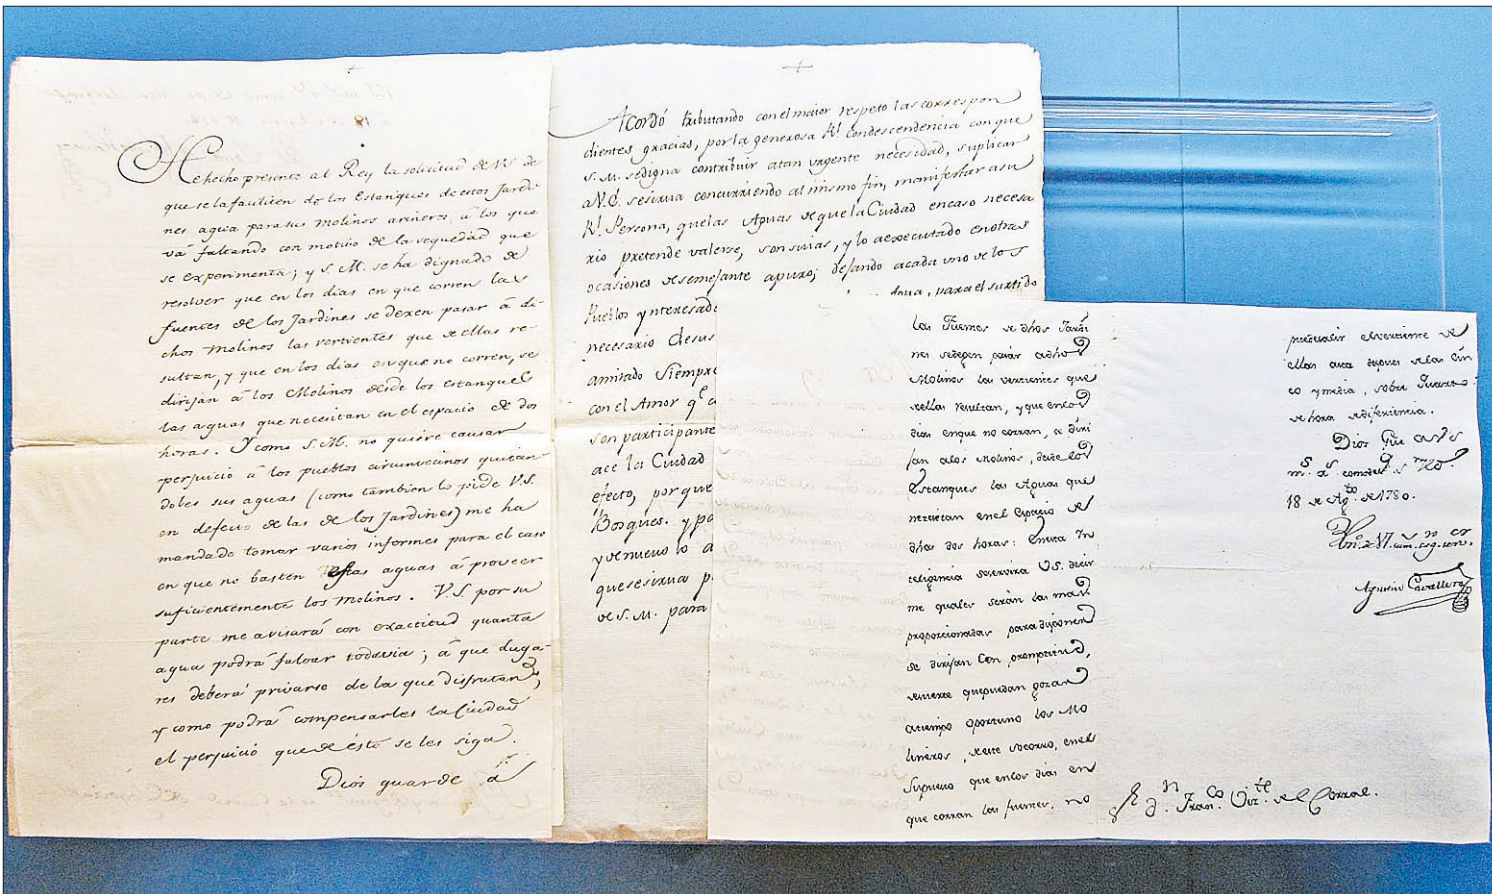 He hecho presente al Rey la solicitud de V.S. de
que se la faciliten de los Estanques de estos Jardi-
nes agua para sus Molinos arineros, á los que
vá faltando con motivo de la sequedad que
se experimenta; y S. M. se ha dignado de
resolver que en los dias en que corren las
fuentes de los Jardines se dexen pasar á di-
chos Molinos las vertientes que de ellas re-
sultan, y que en los dias en que no corren, se
dirijan á los Molinos desde los estanques
las aguas que necesitan en el espacio de dos
horas. Y como S. M. no quiere causar
perjuicio á los pueblos circunvecinos quitan-
doles sus aguas (como tambien lo pide V.S.
en defecto de las de los Jardines) me ha
mandado tomar varios informes para el caso
en que no basten estas aguas á proveer
suficientemente los Molinos. V.S. por su
parte me avisará con exactitud quanta
agua podrá faltar todavia; á que luga-
res deberá privarse de la que disfrutan,
y como podrá compensarles la Ciudad
el perjuicio que de ésto se les siga.
Dios guarde á
Acordó tributando con el maior respeto las correspon
dientes gracias, por la generosa Rl. Condescendencia con que
S. M. se digna contribuir a tan urgente necesidad, suplicar
a V.E. se sirva concurriendo al mismo fin, manifestar a su
Rl. Persona, que las Aguas de que la Ciudad en caso necesa
rio pretende valerse, son suias, y lo a executado en otras
ocasiones de semejante apuro; dejando a cada uno de los
Pueblos ynteresad
necesario de sus
Agua, para el surtido
amitado Siempre
con el Amor qe. a
son participante
ace la Ciudad
efecto, porque
Bosques. y pa
y de nuevo lo a
que se sirva p
de S. M. para
las Fuentes de dhos Jardi
nes se degen pasar a dhos
Molinos las vertientes que
de ellas resultan, y que en los
dias en que no corran, se diri
jan a los Molinos, desde los
Estanques las Aguas que
necesitan en el Espacio de
dhas dos horas: En esta In
teligencia se servira V.S. decir
me quales serán las mas
proporcionadas para disponer
se dirijan con promptitud,
de suerte que puedan gozar
a tiempo oportuno los Mo
lineros, de este socorro, en el
Supuesto que en los dias en
que corran las fuentes, no
principalir el vertiente de
ellas asta despues de las cin
co y media, sobre quarto
de hora de diferiencia.
Dios gue a V.S.
ms. as. como deseo. Sn. Yldo.
18 de Agto. de 1780.
Agustin Cavallero
Sr. Dn. Franco. Vizte. del Corral.